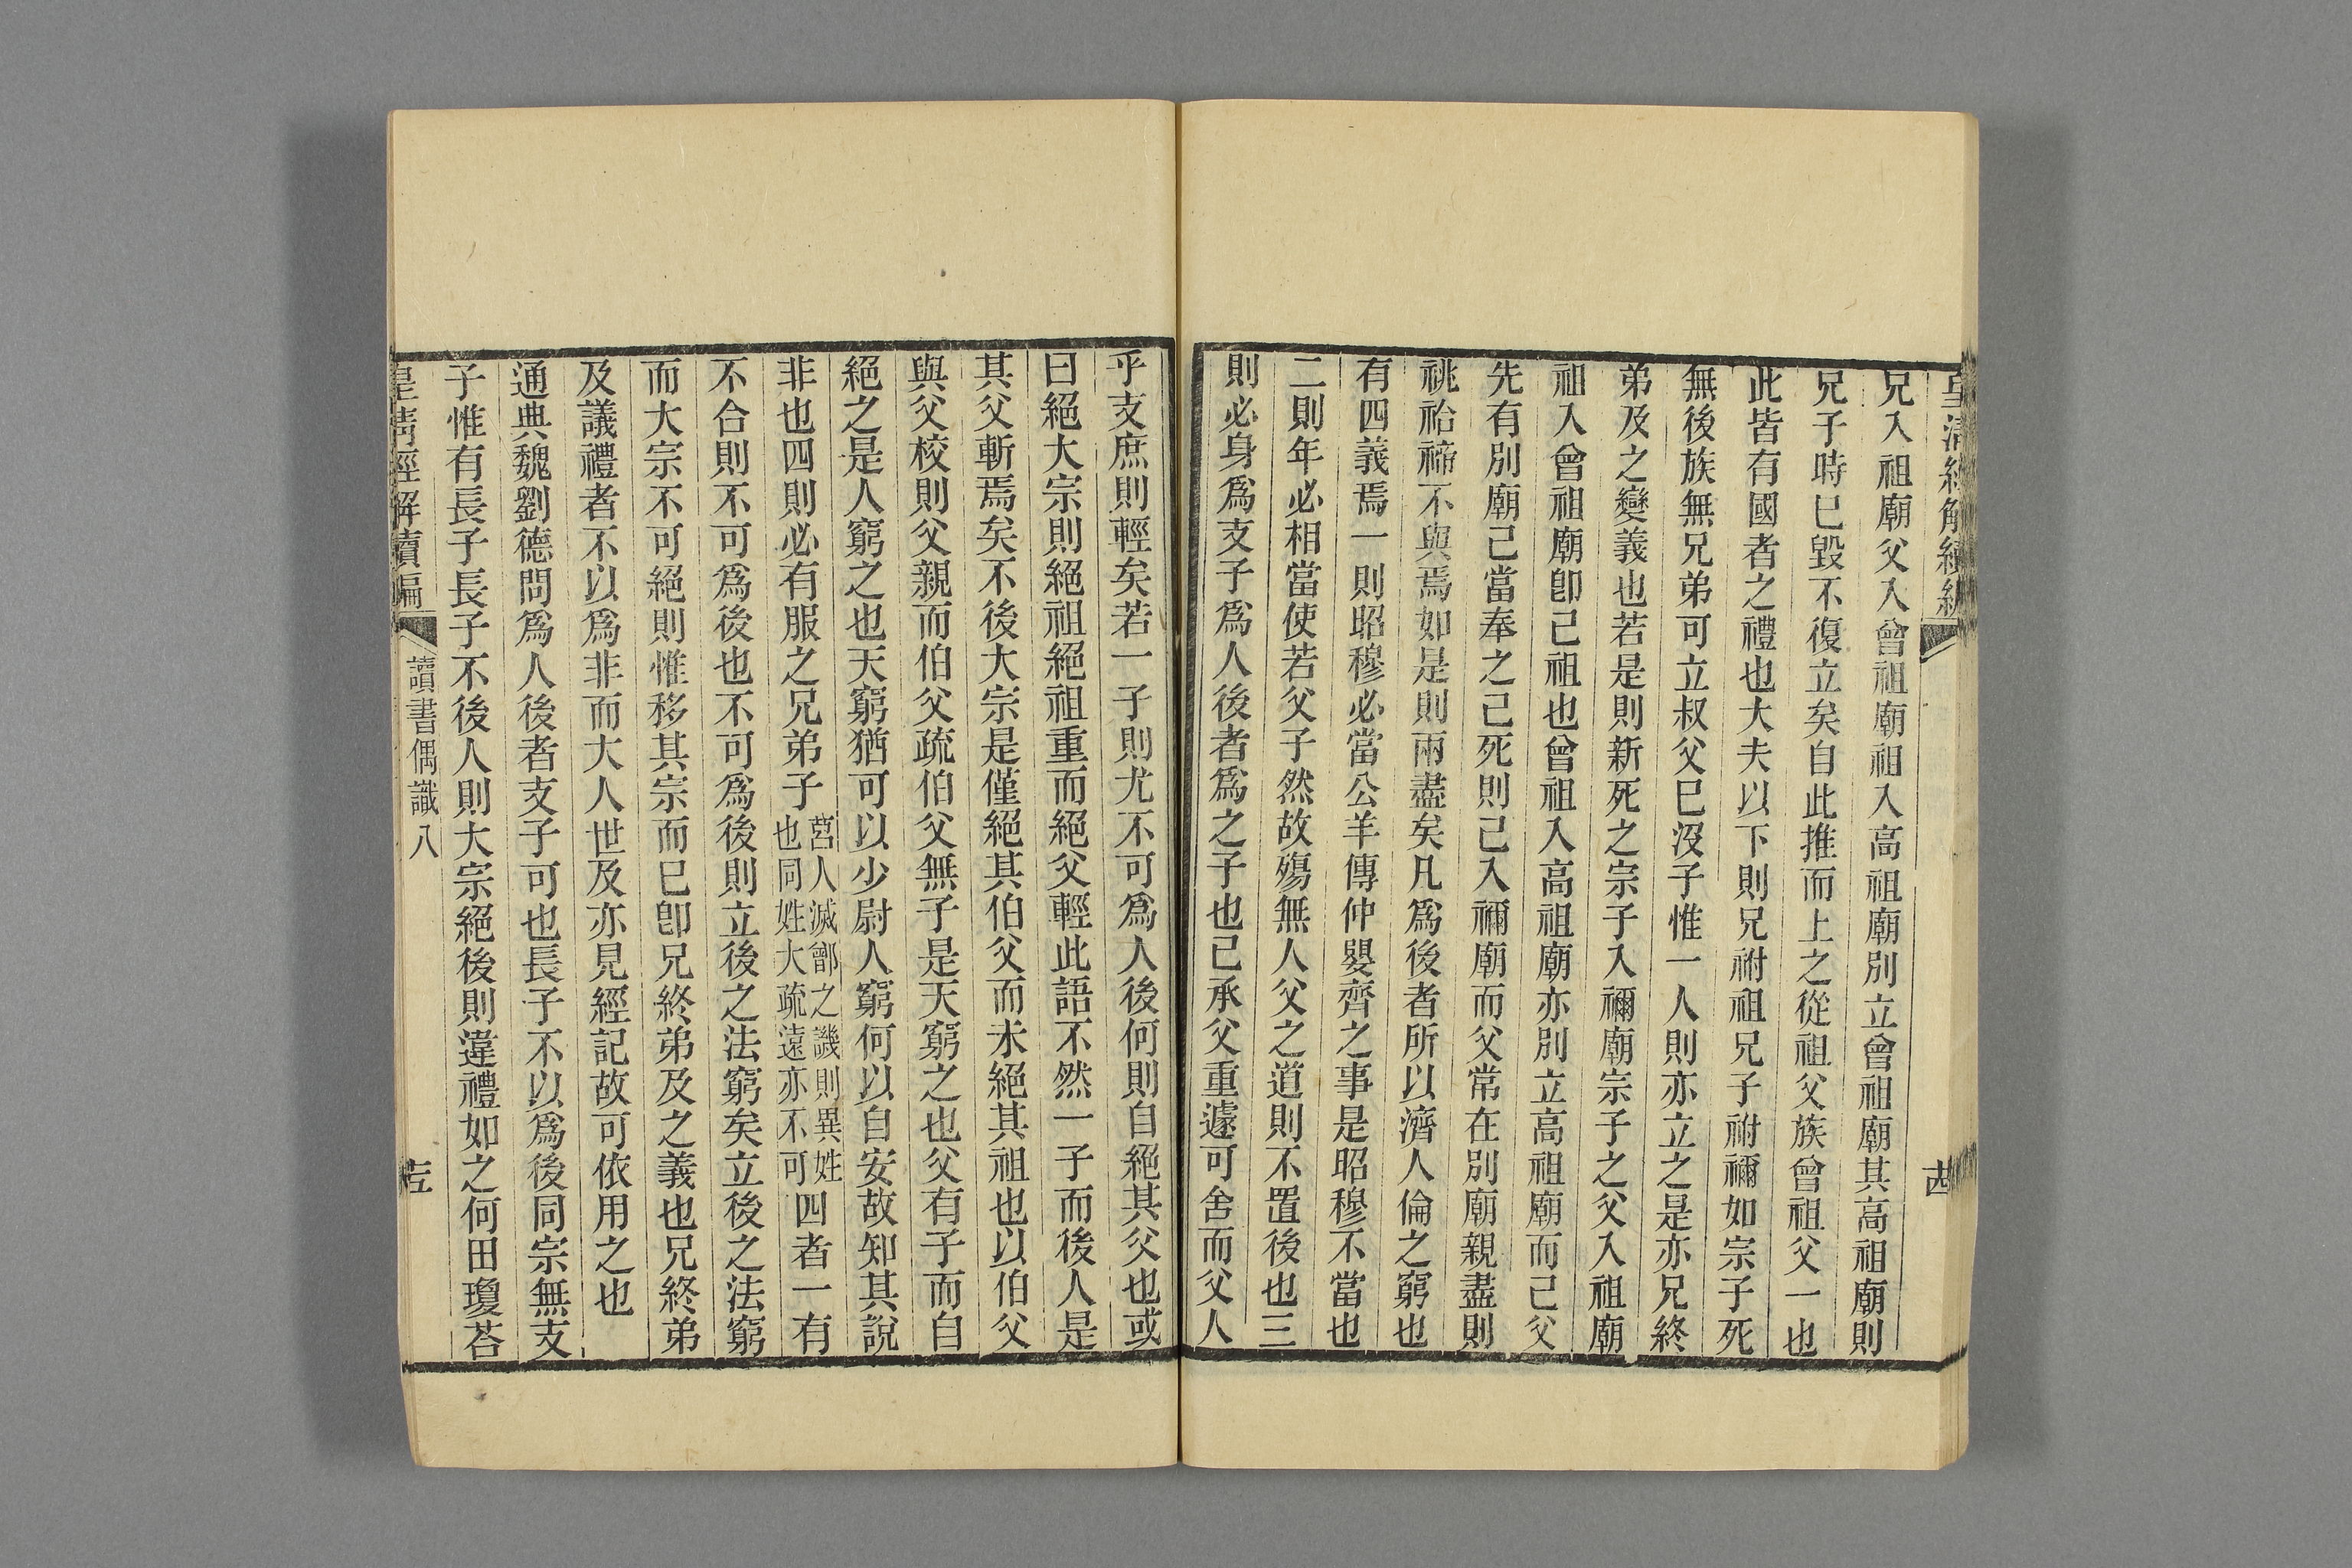 皇清經解續編
兄入祖廟父入曾祖廟祖入高祖廟別立曾祖廟其高祖廟則
兄子時巳毀不復立矣自此推而上之從祖父族曾祖父一也
此皆有國者之禮也大夫以下則兄祔祖兄子祔禰如宗子死
無後族無兄弟可立叔父巳沒子惟一人則亦立之是亦兄終
弟及之變義也若是則新死之宗子入禰廟宗子之父入祖廟
祖入曾祖廟卽己祖也曾祖入高祖廟亦別立高祖廟而己父
先有別廟己當奉之己死則己入禰廟而父常在別廟親盡則
祧祫禘不與焉如是則兩盡矣凡爲後者所以濟人倫之窮也
有四義焉一則昭穆必當公羊傳仲嬰齊之事是昭穆不當也
二則年必相當使若父子然故殤無人父之道則不置後也三
則必身爲支子爲人後者爲之子也己承父重遽可舍而父人
乎支庶則輕矣若一子則尤不可爲人後何則自絕其父也或
曰絕大宗則絕祖絕祖重而絕父輕此語不然一子而後人是
其父斬焉矣不後大宗是僅絕其伯父而未絕其祖也以伯父
與父校則父親而伯父疏伯父無子是天窮之也父有子而自
絕之是人窮之也天窮猶可以少尉人窮何以自安故知其說
非也四則必有服之兄弟子莒人滅鄫之譏則異姓也同姓大疏遠亦不可四者一有
不合則不可爲後也不可爲後則立後之法窮矣立後之法窮
而大宗不可絕則惟移其宗而巳卽兄終弟及之義也兄終弟
及議禮者不以爲非而大人世及亦見經記故可依用之也
通典魏劉德問爲人後者支子可也長子不以爲後同宗無支
子惟有長子長子不後人則大宗絕後則違禮如之何田瓊荅
皇清經解續編
讀書偶識八